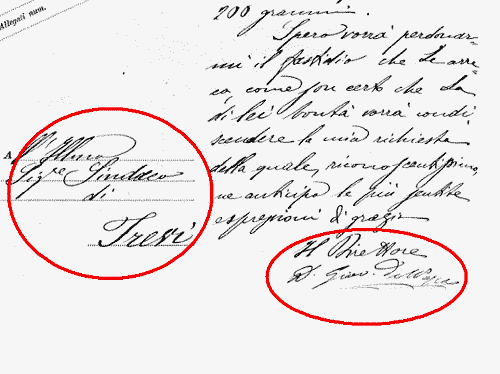 Allegati num.
200 grammi.
Spero vorrà perdonar-
mi il fastidio che Le arre-
co, come son certo che la
di lei bontà vorrà condi-
scendere la mia richiesta
della quale, riconoscentissimo,
ne anticipo le più sentite
espressioni di grazie
Il Direttore
D. Giov.
A Ill.mo
Sig.re Sindaco
di
Trevi